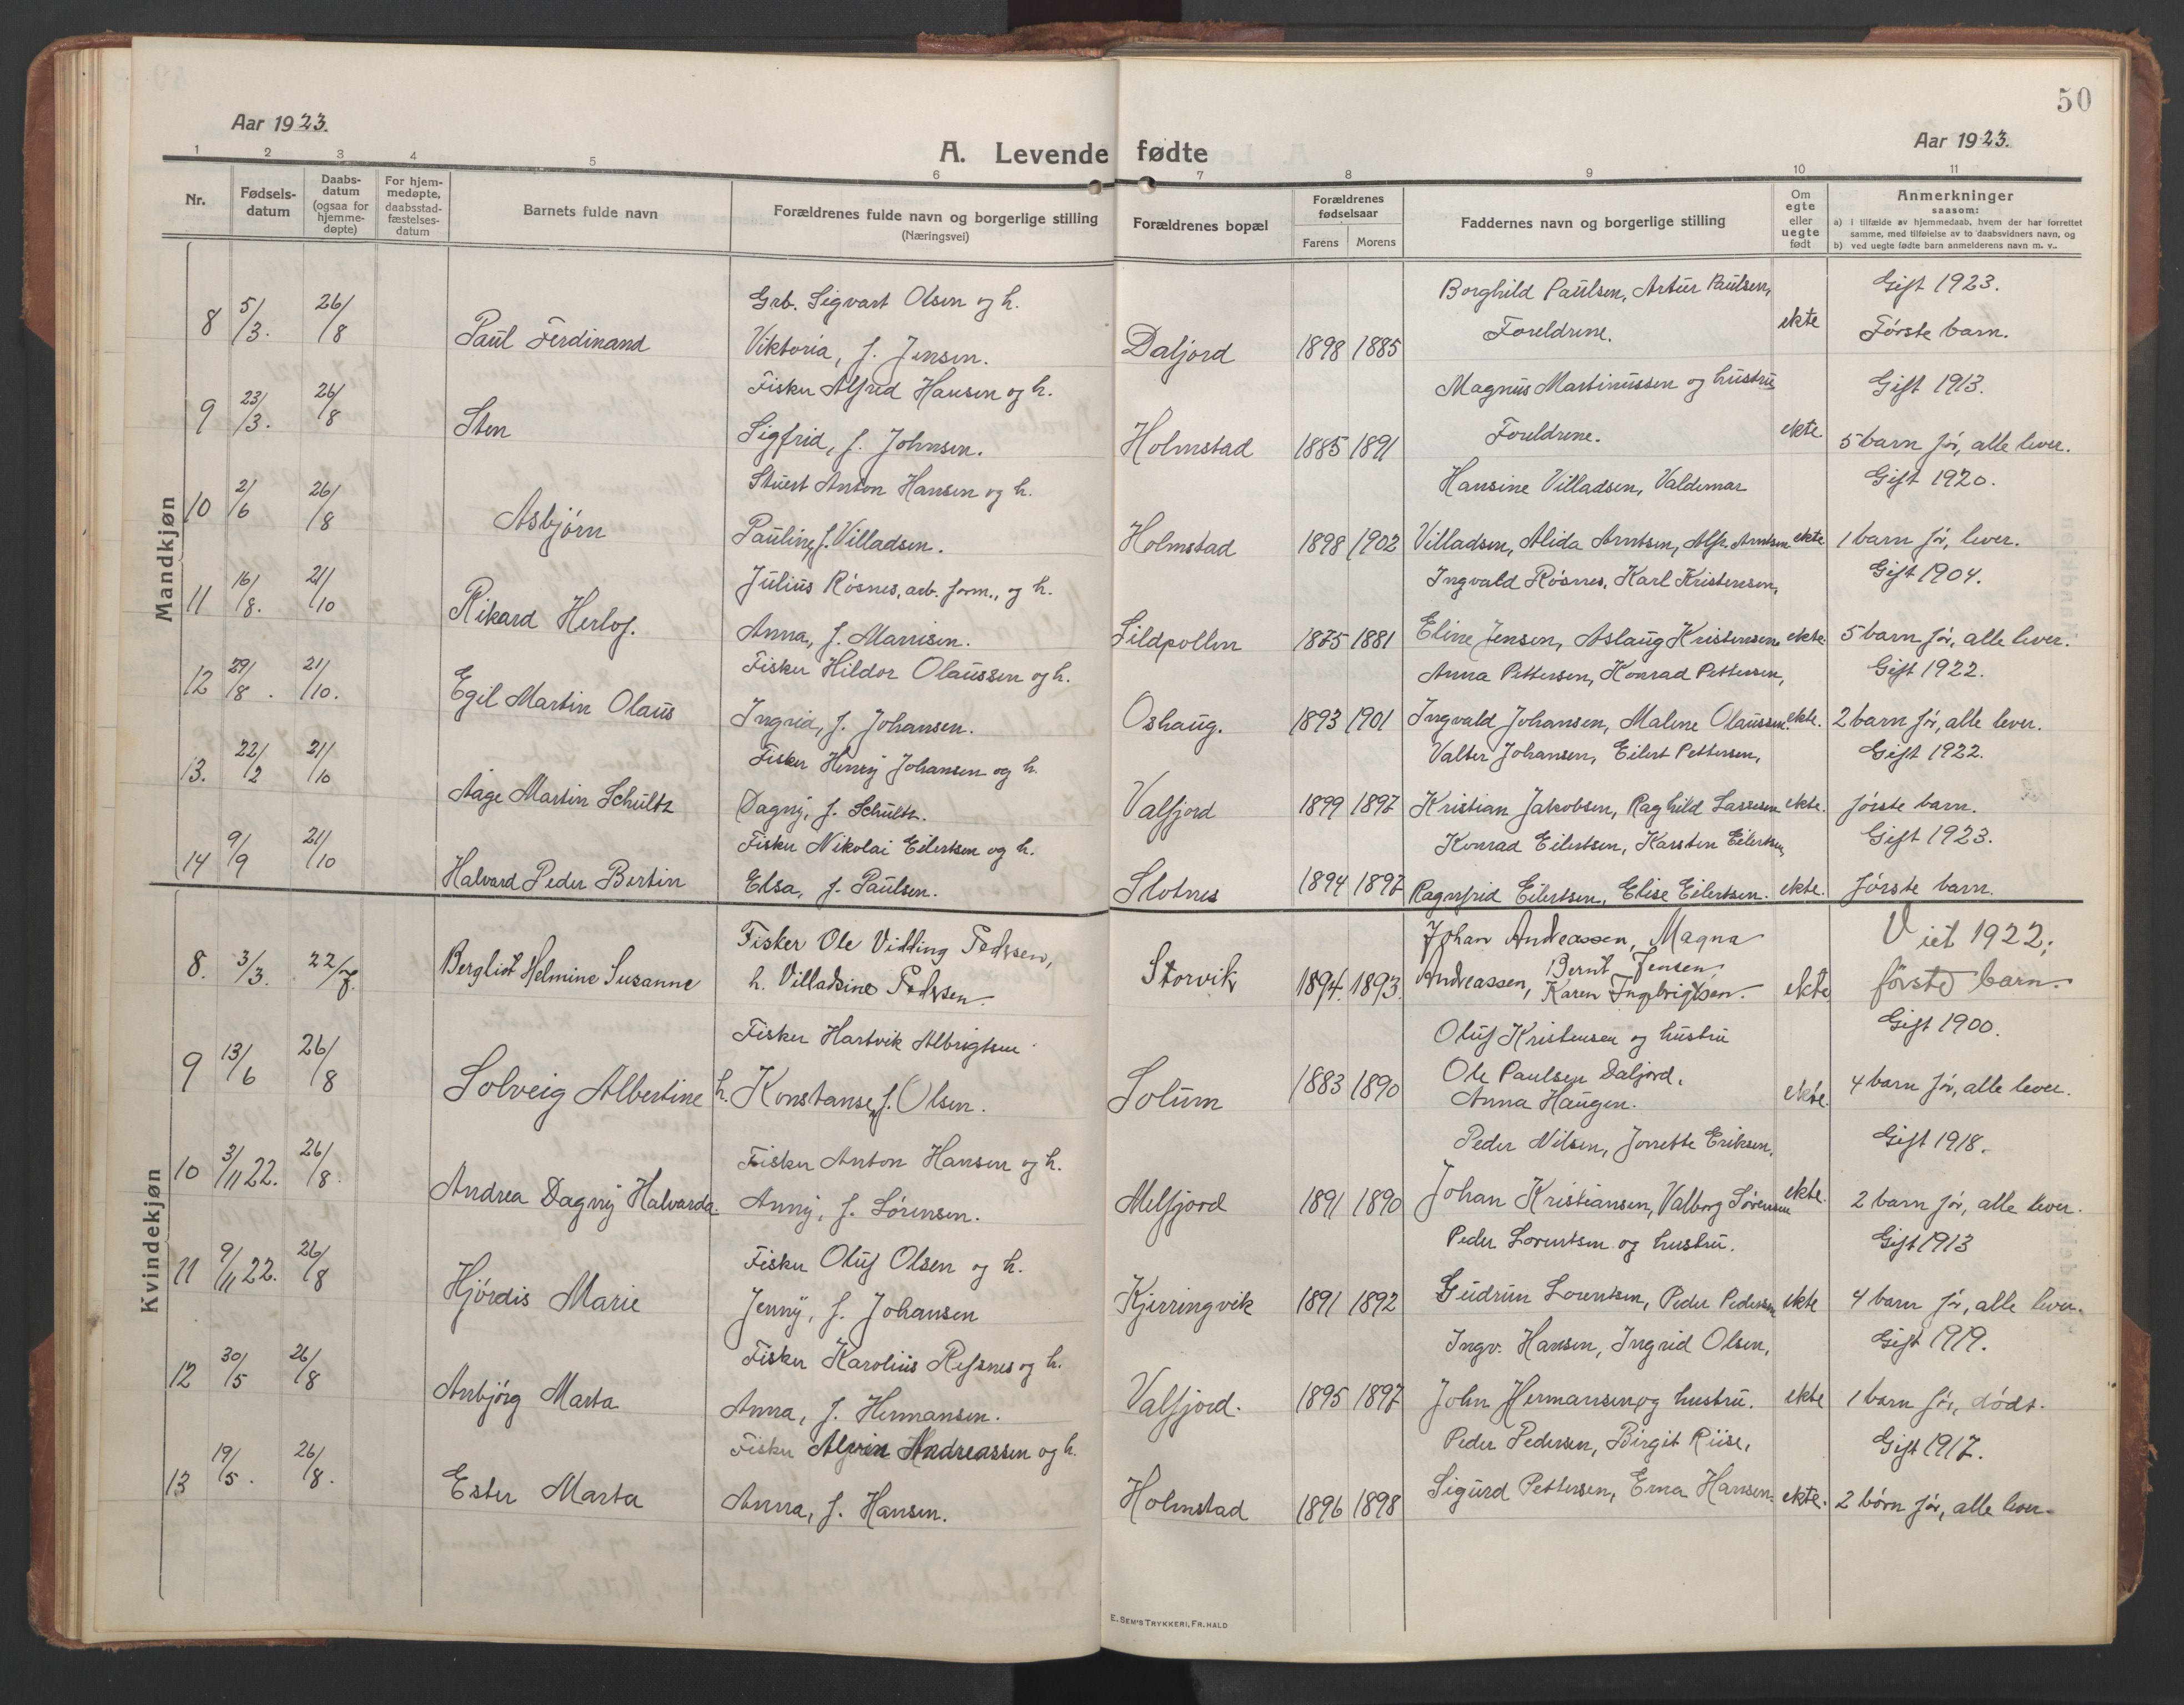 50
Aar 1923.
Aar 1923.
A. Levende fødte
1 2 3 4 5 6 7 8 9 10 11
Nr.
Fødsels-
datum
Daabs-
datum
(ogsaa for
hjemme-
døpte)
For hjem-
medøpte,
daabsstad-
fæstelses-
datum
Barnets fulde navn
Forældrenes fulde navn og borgerlige stilling
(Næringsvei)
Forældrenes bopæl
Forældrenes
fødselsaar
Farens Morens
Faddernes navn og borgerlige stilling
Om
egte
eller
uegte
født
Anmerkninger
saasom:
a) i tilfælde av hjemmedaab, hvem der har forrettet
samme, med tilføielse av to daabsvidners navn, og
b) ved uegte fødte barn anmelderens navn m. v.
Mandkjøn
Grb. Sigvart Olsen og h. Borghild Paulsen, Artur Paulsen, Gift 1923.
8 5/3. 26/8 Paul Ferdinand Viktoria, f. Jensen. Daljord 1898 1885 Foreldrene. ekte Første barn.
Fisker Alfred Hansen og h. Magnus Martinussen og hustru Gift 1913.
9 23/3. 26/8 Sten Sigfrid, f. Johnsen. Holmstad 1885 1891 Foreldrene. ekte 5 barn før, alle lever.
Stuert Anton Hansen og h. Hansine Villadsen, Valdemar Gift 1920.
10 2/6 26/8 Asbjørn Pauline, f. Villadsen. Holmstad 1898 1902 Villadsen, Alida Arntsen, Alfr. Arntsen ekte 1 barn før, lever.
Julius Røsnes, arb. form., og h. Ingvald Røsnes, Karl Kristensen, Gift 1904.
11 16/8. 21/10 Rikard Herlof. Anna, f. Marnisen. Sildpollen 1875 1881 Eline Jensen, Aslaug Kristensen ekte. 5 barn før, alle lever.
Fisker Hildor Olaussen og h. Anna Pettersen, Konrad Pettersen, Gift 1922.
12 29/8. 21/10. Egil Martin Olaus Ingrid, f. Johansen. Oshaug. 1893 1901 Ingvald Johansen, Malene Olaussen. ekte. 2 barn før, alle lever.
Fisker Henry Johansen og h. Valter Johansen, Eilert Pettersen, Gift 1922.
13. 22/2 21/10 Aage Martin Schultz Dagny, f. Schultz. Valfjord 1899 1897 Kristian Jakobsen, Raghild Lassesen ekte. første barn.
Fisker Nikolai Eilertsen og h. Konrad Eilertsen, Karsten Eilertsen, Gift 1923.
14 9/9 21/10 Halvard Peder Bertin Elsa, f. Paulsen. Slotnes 1894 1897 Ragnfrid Eilertsen, Elise Eilertsen. ekte. første barn.
Kvindekjøn
Fisker Ole Vidding Pedersen, Johan Andreassen, Magna Viet 1922;
8. 3/3. 22/7. Bergliot Helmine Susanne h. Villadsine Pedersen Storvik 1894. 1893. Andreassen, Bernt Jensen, Karen Ingebrigtsen. ekte første barn.
Fisker Hartvik Albrigtsen Oluf Kristensen og hustru Gift 1900.
9 13/6 26/8 Solveig Albertine h. Konstanse, f. Olsen. Solum 1883 1890 Ole Paulsen Daljord, Anna Haugen. ekte. 4 barn før, alle lever.
Fisker Anton Hansen og h. Peder Nilsen, Jorrette Eriksen, Gift 1918.
10 3/11 22. 26/8. Andrea Dagny Halvarda. Anny, f. Sørensen. Melfjord 1891 1890 Johan Kristiansen, Valborg Sørensen ekte. 2 barn før, alle lever.
Fisker Oluf Olsen og h. Peder Lorentsen og hustru. Gift 1913
11 9/11 22. 26/8 Hjørdis Marie Jenny, f. Johansen Kjerringvik 1891 1892 Gudrun Lorentsen, Peder Pedersen ekte 4 barn før, alle lever.
Fisker Karolius Refsnes og h. Ingv. Hansen, Ingrid Olsen, Gift 1919.
12 30/5 26/8 Anbjørg Marta Anna, f. Hermansen. Valfjord. 1895 1897 John Hermansen og hustru. ekte 1 barn før, dødt.
Fisker Alvin Andreassen og h. Peder Pedersen, Birgit Riise, Gift 1917.
13 19/5. 26/8. Ester Marta Anna, f. Hansen. Holmstad 1896 1898 Sigurd Pettersen, Erna Hansen. ekte. 2 børn før, alle lever.
E. SEM'S TRYKKERI, FR.HALD